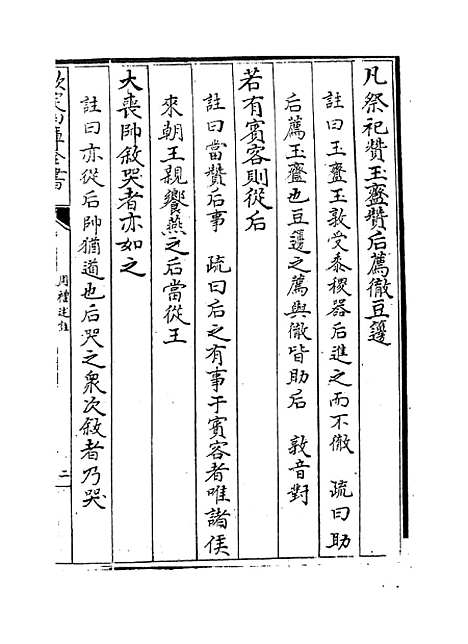 凡祭祀贊玉齍贊后薦徹豆籩
註曰玉齍玉敦受黍稷器后進之而不徹　疏曰助
后薦玉齍也豆籩之薦與徹皆助后　敦音對
若有賓客則從后
註曰當贊后事　疏曰后之有事于賓客者唯諸侯
來朝王親饗燕之后當從王
大喪帥敘哭者亦如之
註曰亦從后帥猶道也后哭之衆次敘者乃哭
欽定四庫全書
周禮述註
二